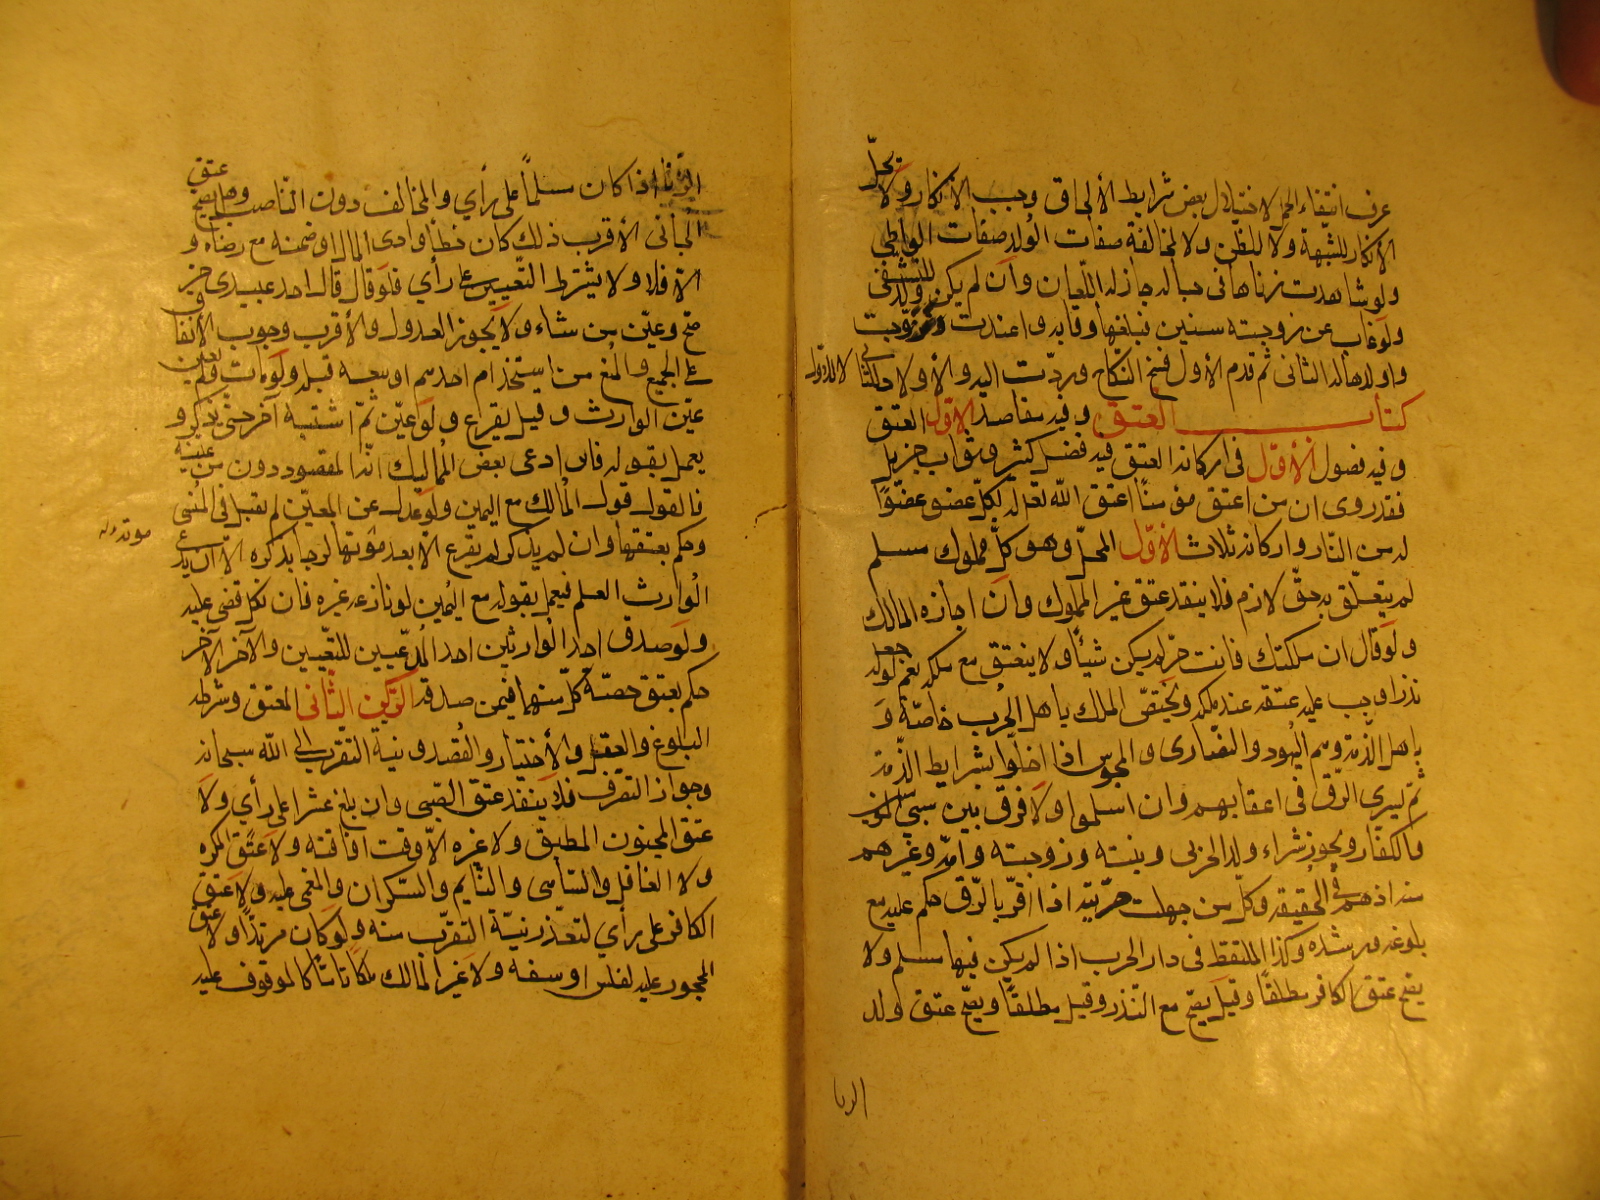 عرف انتفاء الحمل لاختلال بعض شرايط الألحاق وجب الأنكار ولا يحلّ
الأنكار للشبهة ولا للظن ولا لمخالفة صفات الولد صفات الواطي
ولو شاهدت زناها في حباله جاز له اللعان وان لم يكن ولد للتشفى
ولو غاب عن زوجته سنين فبلغها وفاته واعتدت وتزوّجت
واولدها الثانى ثم قدم الأول فسخ النكاح وردّت اليه والأولاد للثانى لا للاوّل
كتاب العتق وفيه مقاصد الاوّل العتق
وفيه فصول الأوّل فى اركانه العتق فيه فضل كثير وثواب جزيل
فقد روى ان من اعتق مؤمنًا اعتق الله تعالى لكلّ عضو عضوًا
له من النار واركانه ثلاث الأوّل المحلّ وهو كلّ مملوك مسلم
لم يتعلّق به حقّ لازم فلا ينفذ عتق غير المملوك وان اجازه المالك
ولو قال ان ملكتك فانت حرّ لم يكن شيأ ولا ينعتق مع ملكه نعم لو جعله
نذرا وجب عليه عتقه عند ملكه ويختصّ الملك باهل الحرب خاصّة و
باهل الذمة وهم اليهود والنصارى والمجوس اذا اخلّوا بشرايط الذّمة
ثمّ يسرى الرّق فى اعقابهم وان اسلموا ولا فرق بين سبى المؤمنين
والكفار ويجوز شراء ولد الحربى وبنته وزوجته وامّه وغيرهم
منه اذ هم فى الحقيقه وكلّ من جهلت حرّيته اذا اقرّ بالرّق حكم عليه مع
بلوغه ورشده وكذا الملتقط فى دار الحرب اذا لم يكن فيها مسلم ولا
يصحّ عتق الكافر مطلقًا وقيل يصحّ مع النّذر وقيل مطلقًا ويصحّ عتق ولد
الزنا
الزّنا اذا كان مسلمًا على رأي والمخالف دون النّاصب وهل يصحّ عتق
الجانى الأقرب ذلك كان خطأ وادى المال او ضمنه مع رضاه و
الّا فلا ولا يشترط التّعيين على رأي فلو قال قال احد عبيدى حر
صحّ وعيّن من شاء ولا يجوز العدول والأقرب وجوب الأنفاق
على الجميع والمنع من استخدام احدهم او بيعه قبله ولو مات ولم يعيّن
عيّن الوارث وقيل يقرع ولو عيّن ثمّ اشتبه آخر حتّى يذكر و
يعمل بقوله فان ادعى بعض المماليك انّه المقصود دون من عيّنه
فالقول قول المالك مع اليمين ولو عدل عن المعيّن لم يقبل فى المنسى
وحكم بعتقهما وان لم يذكر لم يقرع الّا بعد موته لرجا بذكره الّا ان يدعى
موته
الوارث العلم فيعمل بقوله مع اليمين لو نازعه غيره فان نكل قضى عليه
ولو صدق احد الوارثين احد المدّعيين للتّعيين والآخر الآخر
حكم بعتق حصّة كلّ منهما فيمن صدقه الرّكن الثّانى المعتق وشرطه
البلوغ والعقل والأختيار والقصد ونية التقرب الى الله سبحانه
وجواز التصرّف فلا ينفذ عتق الصّبى وان بلغ عشرا على رأي ولا
عتق المجنون المطبق ولا غيره الّا وقت افاقته ولا عتق المكره
ولا الغافل والسّاهى والنّايم والسّكران والمغمى عليه ولا عتق
الكافر على رأي لتعذّر نيّة التقرّب منه ولو كان مرتدًّا ولا عتق
المحجور عليه لفلس او سفه ولا غير المالك ملكًا تامًّا كالموقوف عليه